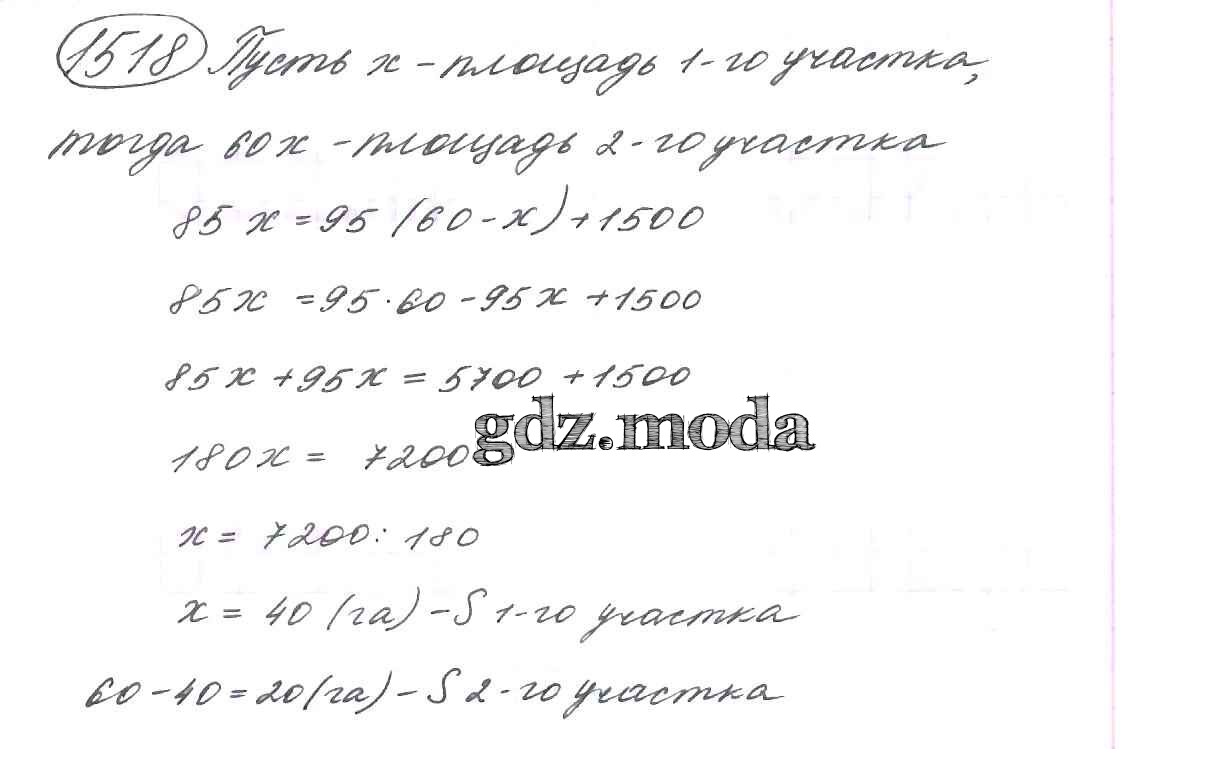 1518 Пусть x - площадь 1-го участка,
тогда 60x - площадь 2-го участка
85x = 95(60-x)+1500
85x = 95·60-95x+1500
85x+95x = 5700+1500
180x = 7200
gdz.moda
x = 7200:180
x = 40(га)-S 1-го участка
60-40=20(га)-S 2-го участка